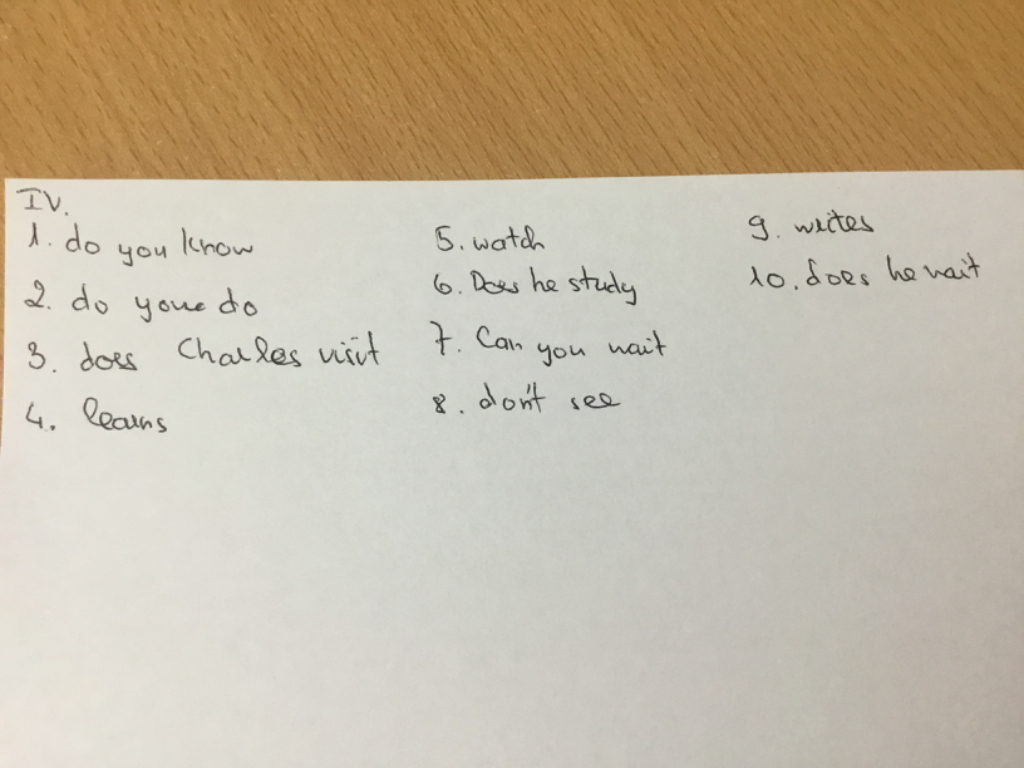 IV.
1. do you know
2. do you do
3. does Charles visit
4. learns
5. watch
6. Does he study
7. Can you wait
8. don't see
9. writes
10. does he wait